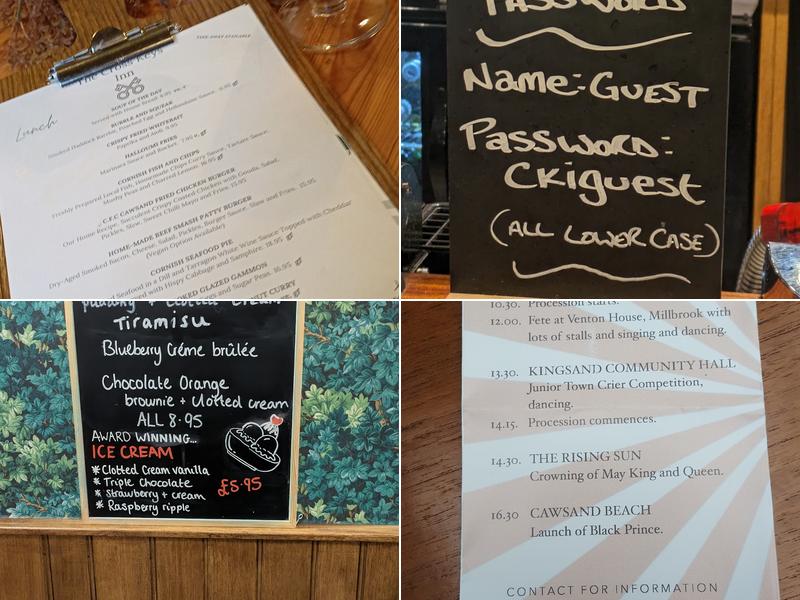 TAKE-AWAY AVAILABLE
The Cross Keys
Inn
Lunch
SOUP OF THE DAY
Served with Home Bread
BUBBLE AND SQUEAK
Smoked Haddock Rarebit, Poached Egg and Hollandaise Sauce.
CRISPY FRIED WHITEBAIT
Paprika and Aioli.
HALLOUMI FRIES
Marinara Sauce and Rocket. 7.90
CORNISH FISH AND CHIPS
Freshly Prepared Local Fish, Homemade Chips Curry Sauce, Tartare Sauce,
Mushy Peas and Charred Lemon. 16.95
C.F.C CAWSAND FRIED CHICKEN BURGER
Our Home Recipe, Succulent Crispy Coated Chicken with Gouda, Salad,
Pickles, Slaw, Sweet Chilli Mayo and Fries. 15.95
HOME-MADE BEEF SMASH PATTY BURGER
Dry-Aged Smoked Bacon, Cheese, Salad, Pickles, Burger Sauce, Slaw and Fries. 15.95
(Vegan Option Available)
CORNISH SEAFOOD PIE
Seafood in a Dill and Tarragon White Wine Sauce Topped with Cheddar
with Hispy Cabbage and Samphire. 18.95
GLAZED GAMMON
and Sugar Peas. 16.95
CURRY
PASSWORD
Name:-GUEST
Password:
Ckiguest
(ALL LOWER CASE)
pudding + Clotted Cream
Tiramisu
Blueberry Créme brûlée
Chocolate Orange
brownie + Clotted cream
ALL 8.95
AWARD WINNING...
ICE CREAM
* Clotted Cream vanilla
* Triple Chocolate
* Strawberry + cream
* Raspberry ripple
£5.95
10.30. Procession starts.
12.00. Fete at Venton House, Millbrook with
lots of stalls and singing and dancing.
13.30. KINGSAND COMMUNITY HALL
Junior Town Crier Competition,
dancing.
14.15. Procession commences.
14.30. THE RISING SUN
Crowning of May King and Queen.
16.30 CAWSAND BEACH
Launch of Black Prince.
CONTACT FOR INFORMATION